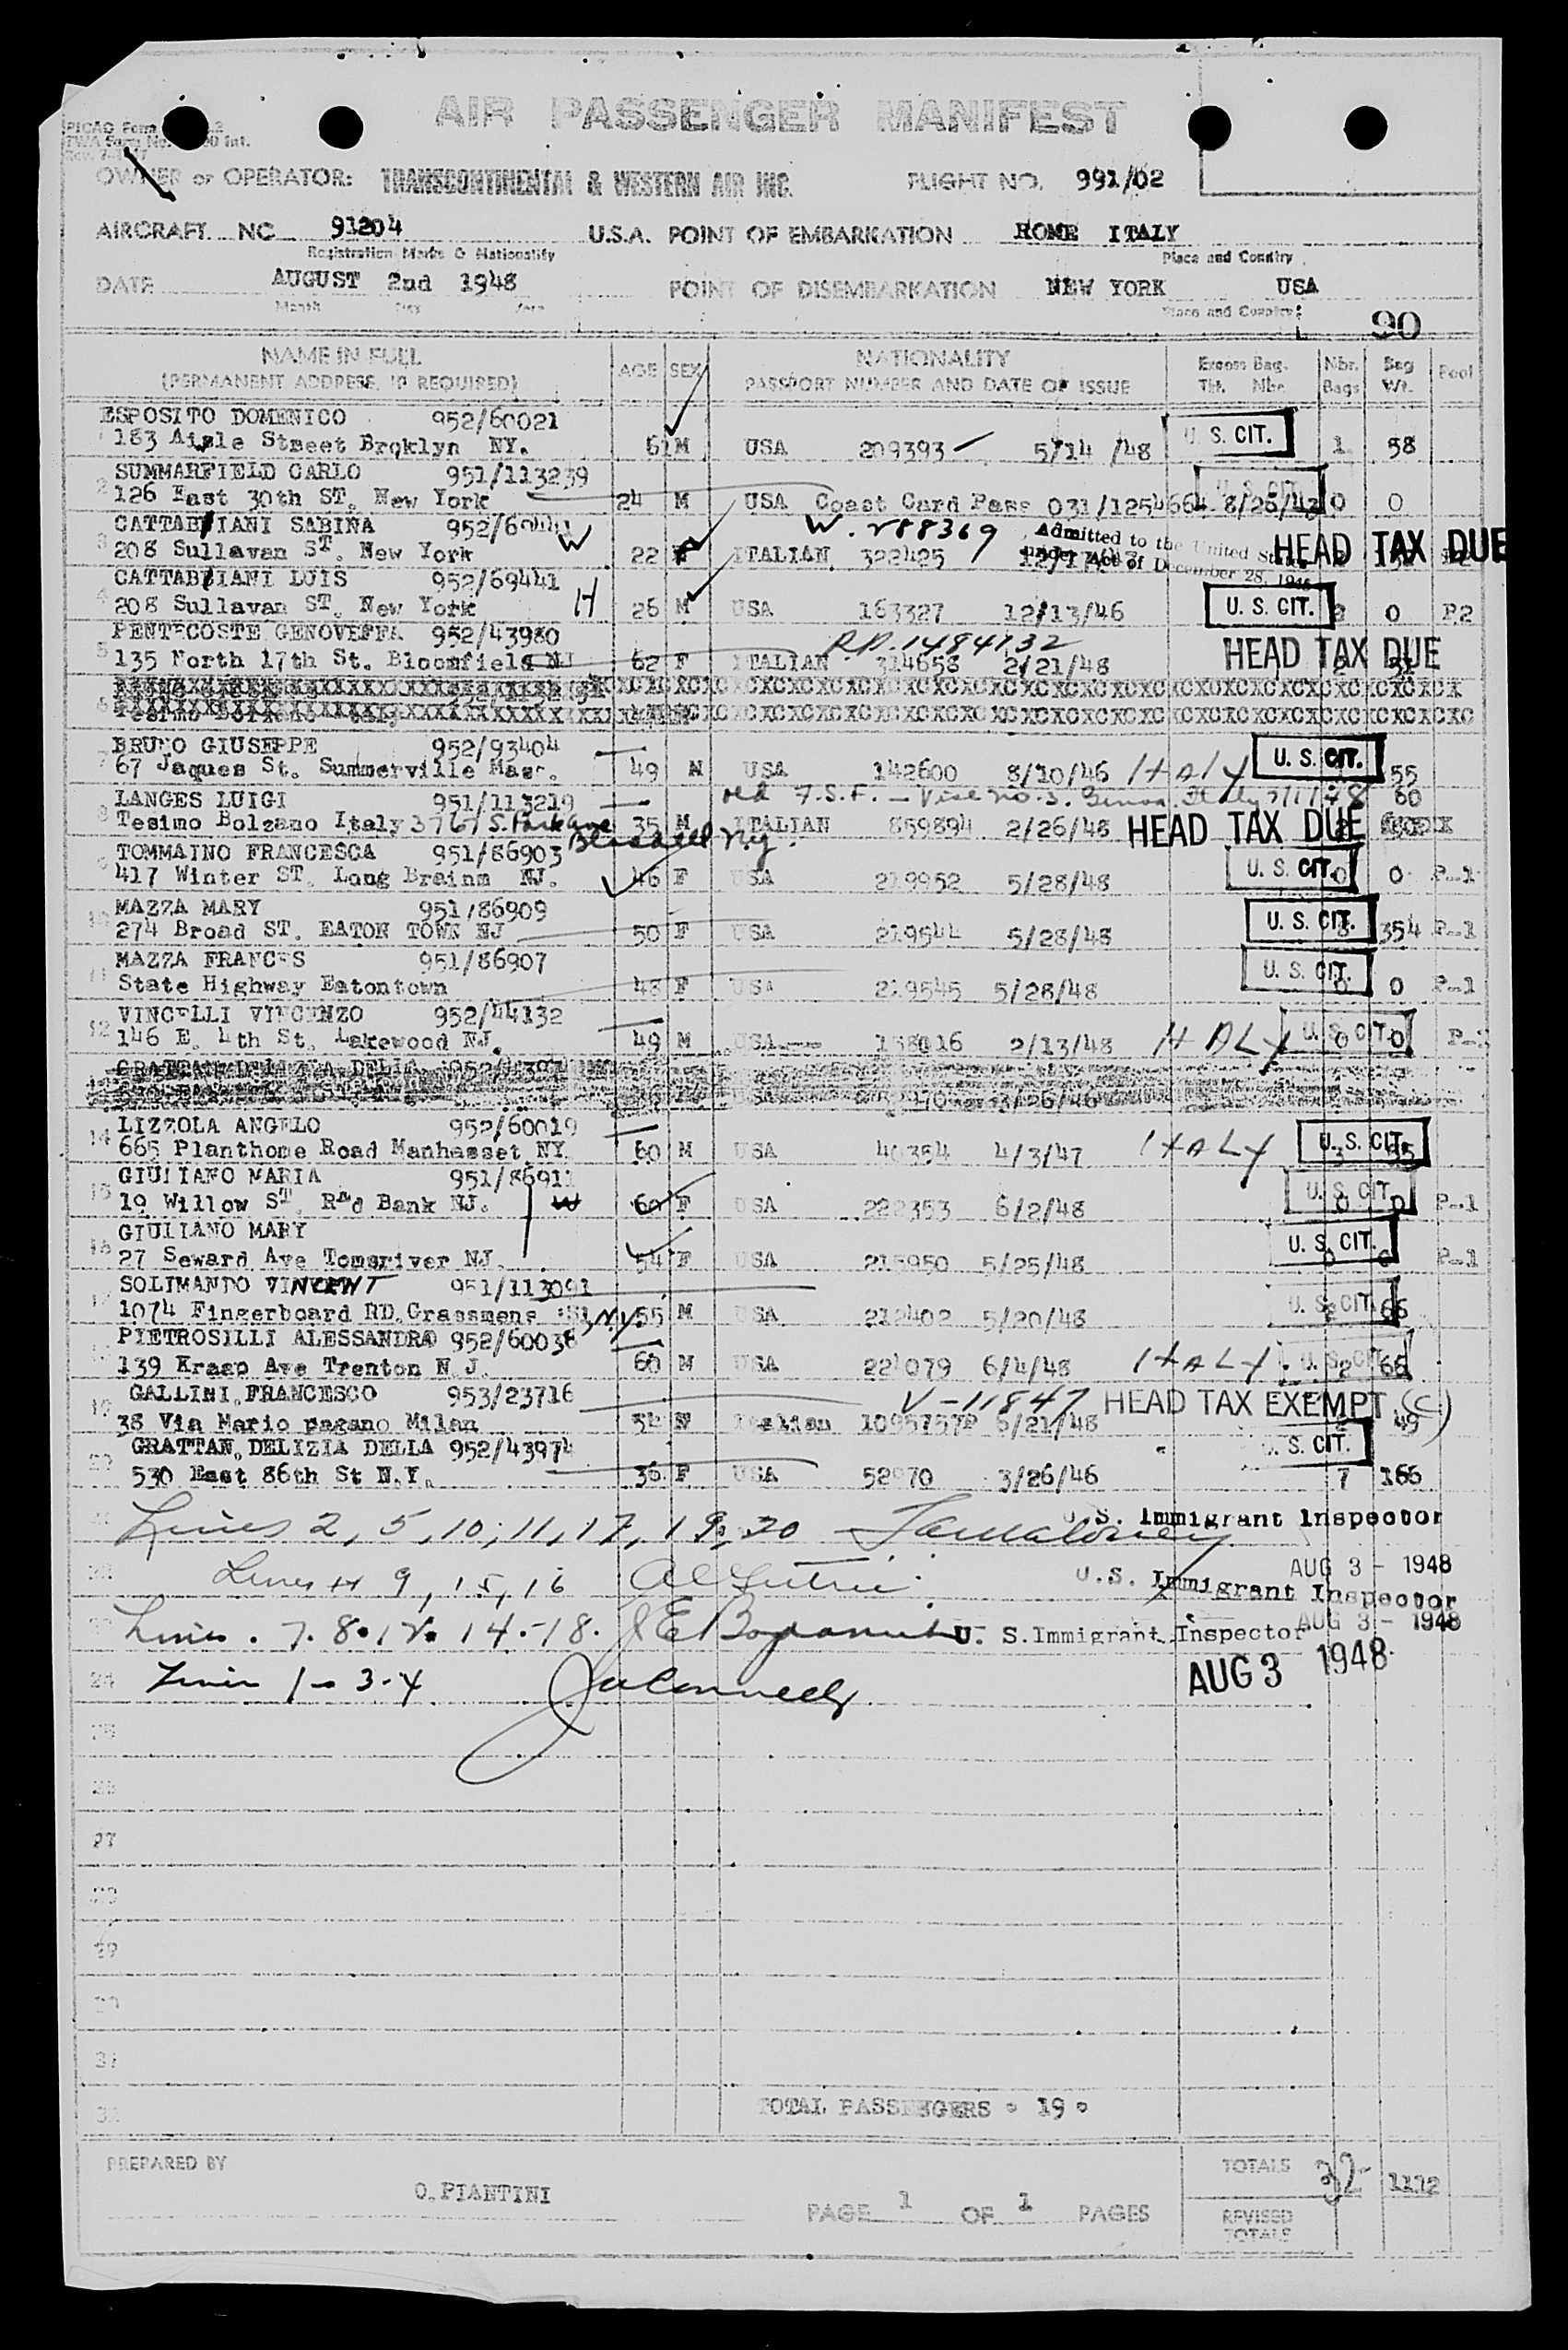 AIR PASSENGER MANIFEST
PICAO Form
TWA Form No. Int.
OWNER or OPERATOR: TRANSCONTINENTAL & WESTERN AIR INC. FLIGHT NO. 991/02
AIRCRAFT NC 91204 U.S.A. POINT OF EMBARKATION ROME ITALY
Registration Marks & Nationality Place and Country
DATE AUGUST 2nd 1948 POINT OF DISEMBARKATION NEW YORK USA
Month Day Year Place and Country
90
NAME IN FULL AGE SEX NATIONALITY Excess Bag. Nbr. Bag Pool
(PERMANENT ADDRESS, IF REQUIRED) PASSPORT NUMBER AND DATE OF ISSUE Tkt. Nbr. Bags Wt.
ESPOSITO DOMENICO 952/60021
183 Aisle Street Broklyn NY. 61 M USA 209393 5/14 /48 U.S. CIT. 1 58
SUMMARFIELD CARLO 951/113239
2 126 East 30th ST. New York 24 M USA Coast Card Pass 031/1254664 8/25/43 U.S. CIT. 0 0
CATTABIANI SABINA 952/60441 W W. 288369 Admitted to the United States
3 208 Sullavan ST. New York 22 F ITALIAN 322425 under Act of December 28, 1945 HEAD TAX DUE
CATTABIANI LUIS 952/69441 H
4 208 Sullavan ST. New York 26 M USA 163327 12/13/46 U.S. CIT. 0 P2
PENTECOSTE GENOVEFFA 952/43980 R.P. 1484732
5 135 North 17th St. Bloomfield NJ 62 F ITALIAN 314658 2/21/48 HEAD TAX DUE
BRUNO GIUSEPPE 952/93404
7 67 Jaques St. Summerville Mass. 49 M USA 142600 8/10/46 ITALY U.S. CIT. 55
LANGES LUIGI 951/113219 60
8 Tesimo Bolzano Italy 3767 S. Park Ave 35 M ITALIAN 859894 2/26/48 HEAD TAX DUE
TOMMAINO FRANCESCA 951/86903 Blasdell NY.
417 Winter ST. Long Brainm NJ. 46 F USA 219952 5/28/48 U.S. CIT. 0 0 P-1
MAZZA MARY 951/86909
10 274 Broad ST. EATON TOWN NJ 50 F USA 219544 5/28/48 U.S. CIT. 354 P-1
MAZZA FRANCES 951/86907
11 State Highway Eatontown 48 F USA 219545 5/28/48 U.S. CIT. 0 0 P-1
VINCELLI VINCENZO 952/44132
12 146 E. 4th St. Lakewood NJ. 49 M USA 2/13/48 ITALY U.S. CIT. 0 0
LIZZOLA ANGELO 952/60019
14 665 Planthome Road Manhasset NY 60 M USA 40354 4/3/47 ITALY U.S. CIT.
GIULIANO MARIA 951/86911
15 19 Willow ST. Red Bank NJ. W 60 F USA 222353 6/2/48 U.S. CIT. 0 0 P-1
GIULIANO MARY
16 27 Seward Ave Tomsriver NJ. 54 F USA 215950 5/25/48 U.S. CIT. 0 0 P-1
SOLIMANDO VINCENT 951/113091
1074 Fingerboard RD.Grassmens N.Y. 55 M USA 212402 5/20/48 U.S. CIT. 66
PIETROSILLI ALESSANDRO 952/60038
139 Krasp Ave Trenton N.J. 60 M USA 221079 6/4/48 ITALY. U.S. CIT. 2 66
GALLINI, FRANCESCO 953/23716 V-11847 HEAD TAX EXEMPT (C)
19 38 Via Mario pagano Milan M Italian 1095757P 6/21/48 49
GRATTAN, DELIZIA DELLA 952/43974 U.S. CIT.
20 530 East 86th St N.Y. 36 F USA 52970 3/26/46 7 166
Lines 2, 5, 10, 11, 17, 19, 20 U.S. Immigrant Inspector
AUG 3 - 1948
Lines 9, 15, 16 U.S. Immigrant Inspector
Lines. 7. 8. 12. 14. 18. U. S. Immigrant Inspector AUG 3 - 1948
24 Lines 1 - 3 - 4 AUG 3 1948
25
26
27
29
31
TOTAL PASSENGERS 19
PREPARED BY TOTALS 32 1112
O. PIANTINI
PAGE 1 OF 1 PAGES REVISED
TOTALS